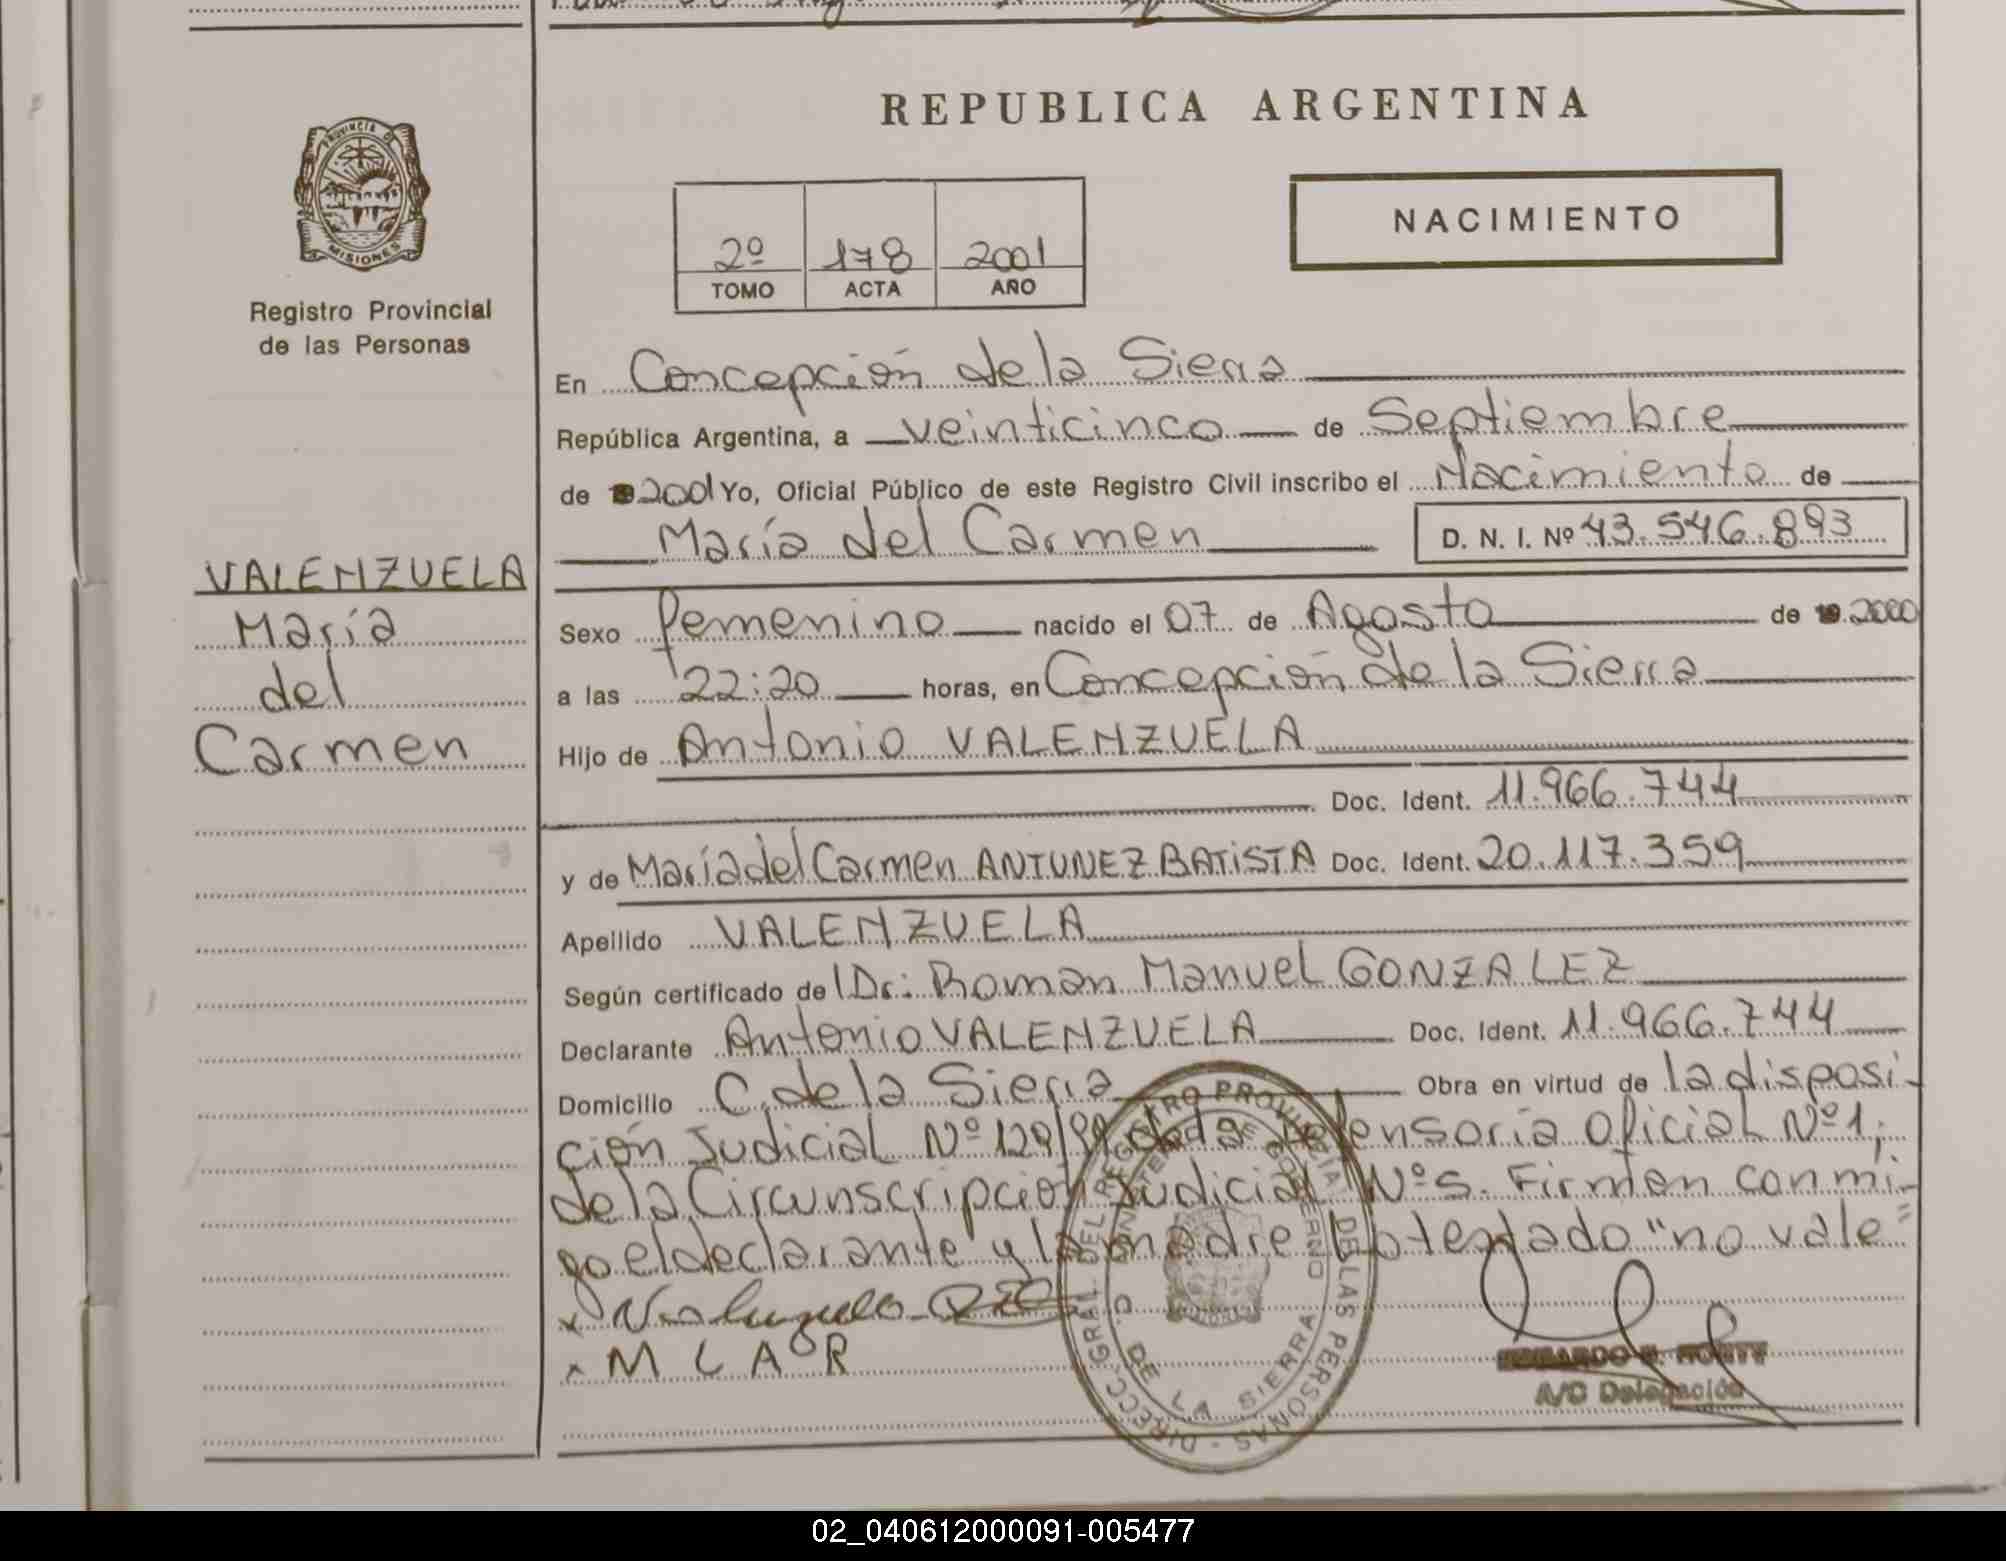 REPUBLICA ARGENTINA
PROVINCIA DE
MISIONES
Registro Provincial
de las Personas
2º 178 2001
TOMO ACTA AÑO
NACIMIENTO
En Concepción de la Sierra
República Argentina, a veinticinco de Septiembre
de 2001 Yo, Oficial Público de este Registro Civil inscribo el Nacimiento de
María del Carmen D. N. I. Nº 43.546.893
VALENZUELA
María
del
Carmen
Sexo Femenino nacido el 07 de Agosto de 2000
a las 22:20 horas, en Concepción de la Sierra
Hijo de Antonio VALENZUELA
Doc. Ident. 11.966.744
y de María del Carmen ANTUNEZ BATISTA Doc. Ident. 20.117.359
Apellido VALENZUELA
Según certificado de Dr: Roman Manuel GONZALEZ
Declarante Antonio VALENZUELA Doc. Ident. 11.966.744
Domicilio C. de la Sierra Obra en virtud de la disposi-
ción Judicial Nº 129/99 de la Defensoría Oficial Nº1,
de la Circunscripción Judicial Nº s. Firman conmi-
go el declarante y la madre Lo testado "no vale"
x
x M C A R
A/C Delegación
DIRECC. GRAL. DEL REGISTRO PROVINCIAL DE LAS PERSONAS
MINISTERIO DE GOBIERNO
C. DE LA SIERRA
02_040612000091-005477